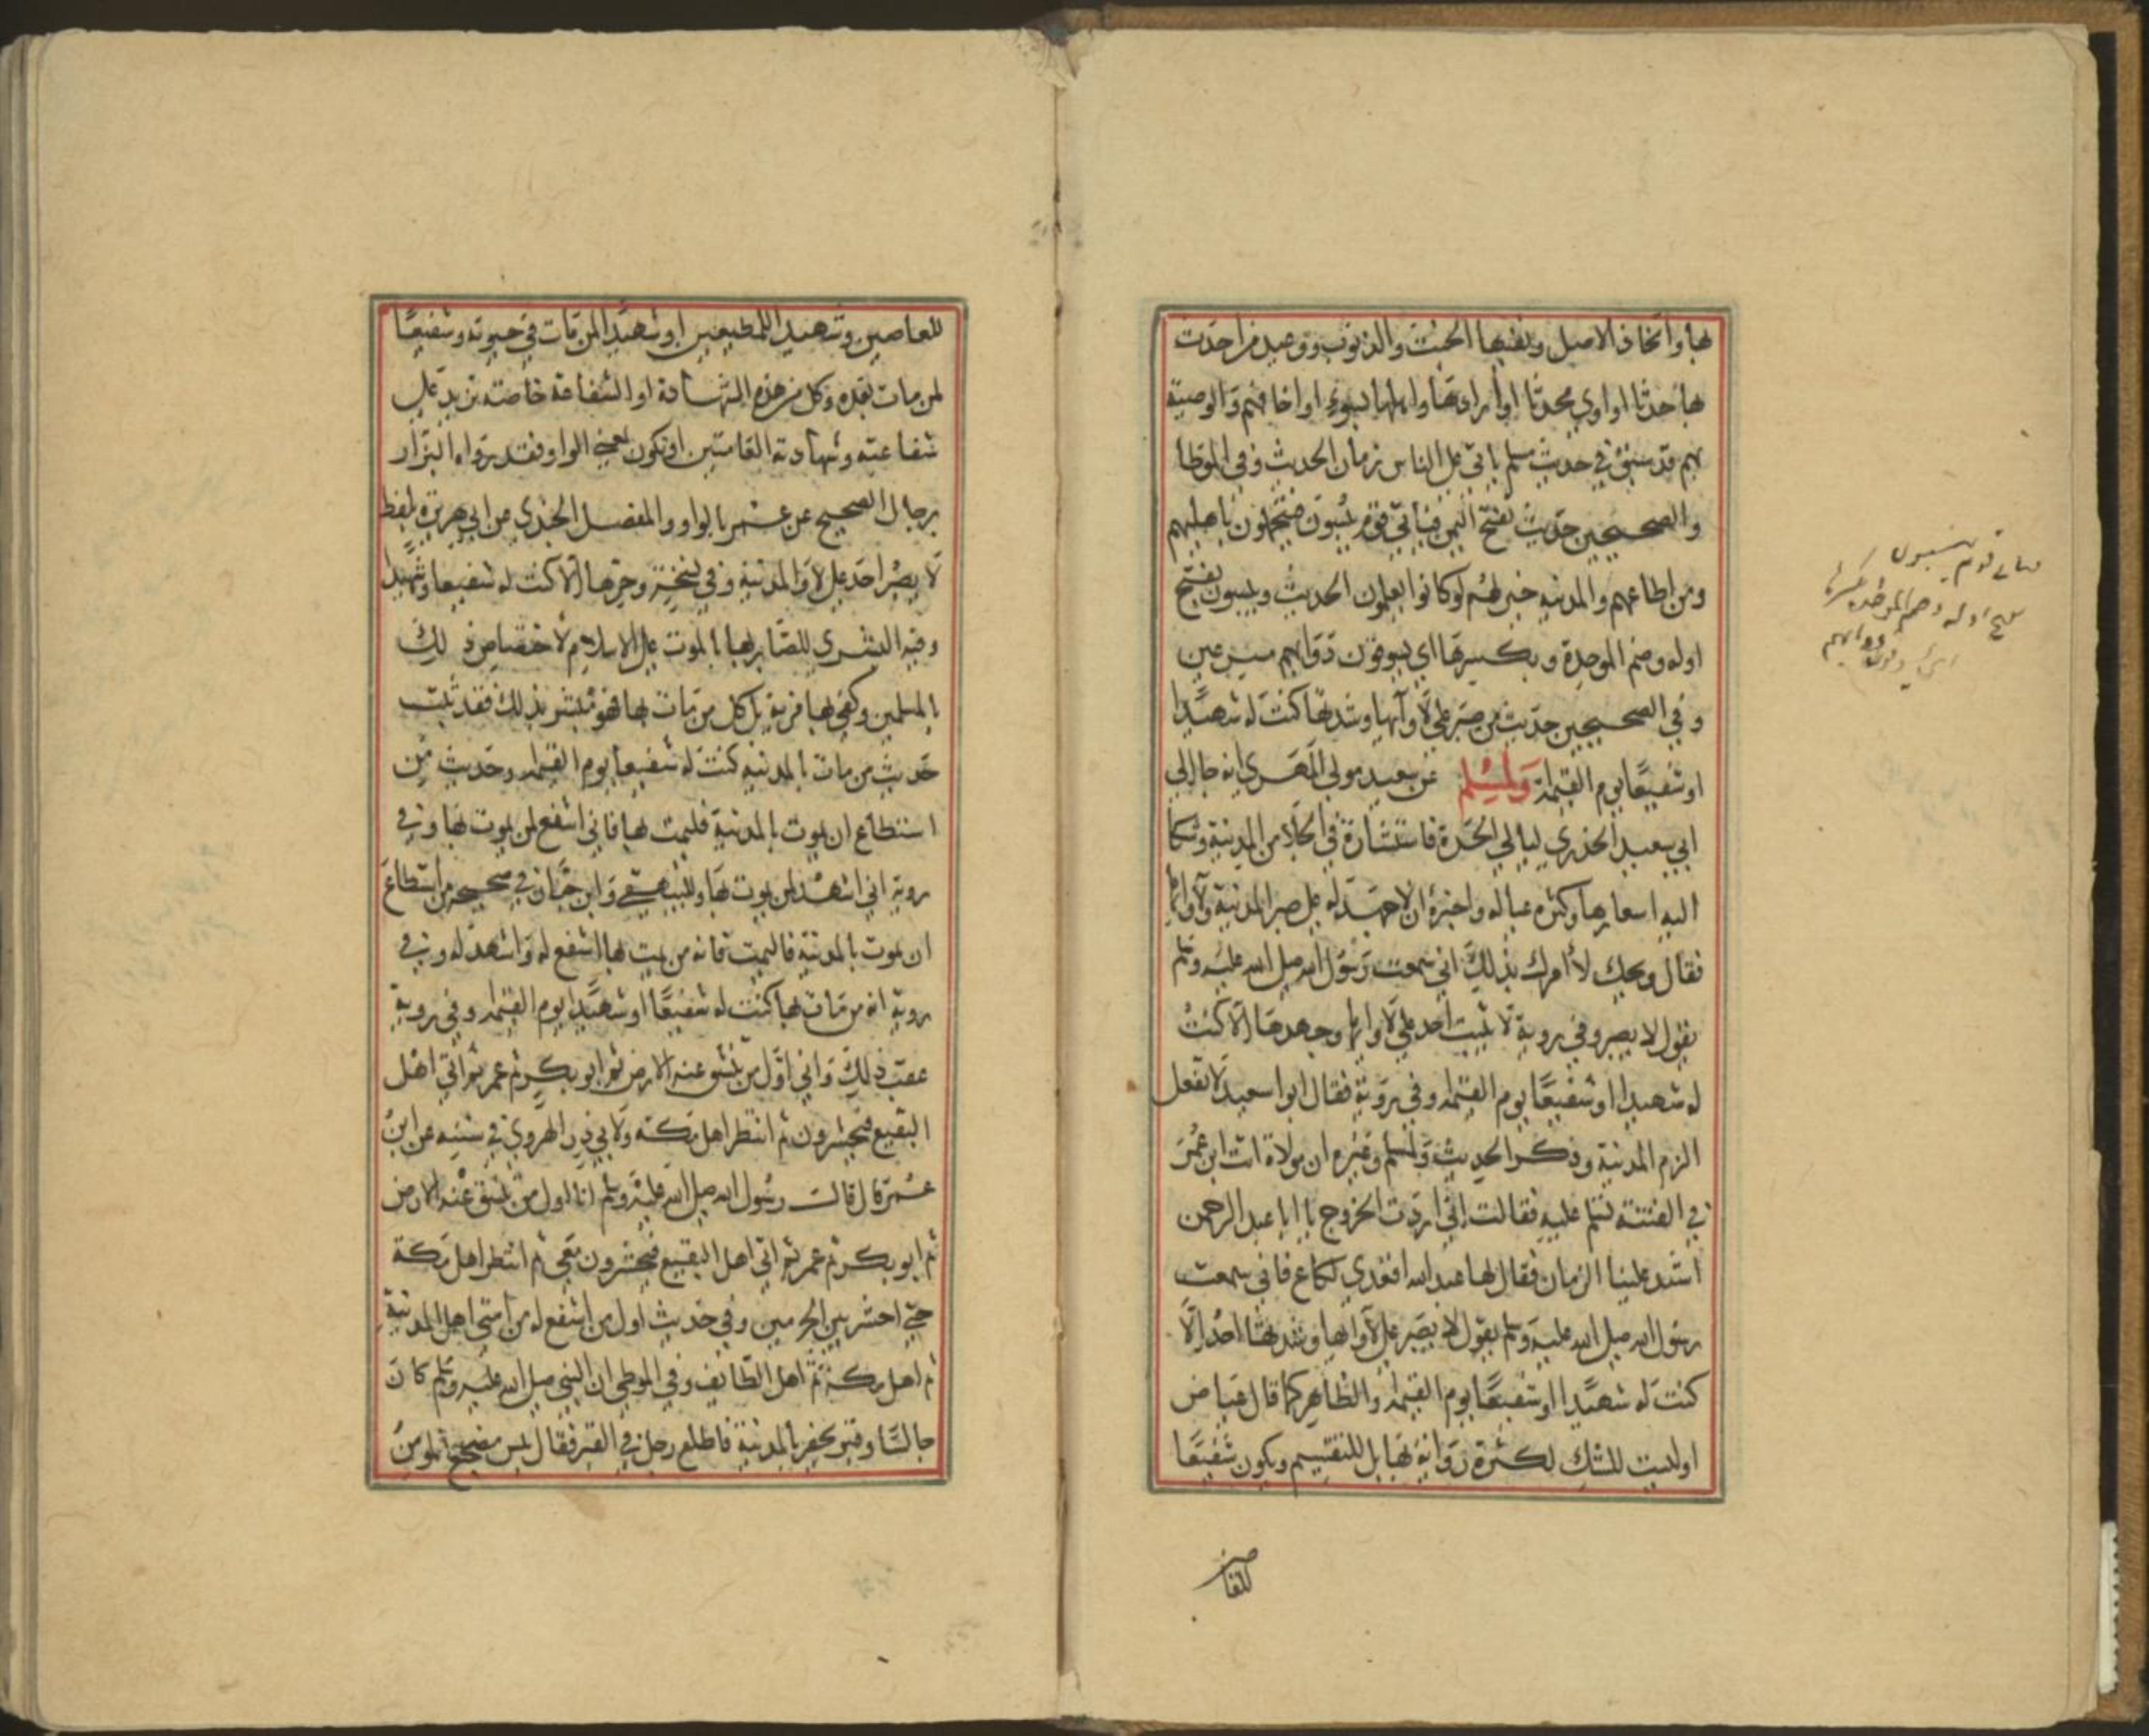 بها واتخاف الاصل ونفيها الخبث والذنوب ووعيد من احدث
بها حدثا او اوي محدثا او ارادها واهلها بسوء او اخافهم والوصية
بهم قد سبق في حديث مسلم ياتي على الناس زمان الحديث وفي الموطا
والصحيحين حديث تفتح اليمن فياتي قوم يبسون فيتحملون باهليهم
ومن اطاعهم والمدينه خير لهم لو كانوا يعلمون الحديث ويبسون بفتح
اوله وضم الموحدة وبكسرها اي يسوقون دوابهم مسرعين
وفي الصحيحين حديث من صبر على لاوآئها وشدتها كنت له شهيدا
او شفيعا يوم القيمة ولمسلم عن سعيد مولي المهري انه جا الي
ابي سعيد الخدري ليالي الحرة فاستشارة في الجلا من المدينة وشكا
اليه اسعارها وكثره عياله واخبره ان لا جهد له على صبر المدينة ولاوائها
فقال ويحك لا أمرك بذلك اني سمعت رسول الله صلى الله عليه وسلم
يقول لا يصبر وفي روية لا يثبت احد على لاوائها وجهدها الا كنت
له شهيدا او شفيعا يوم القيمه وفي رويه فقال ابوا سعيد لا تفعل
الزم المدينة وذكر الحديث ولمسلم وغيره ان مولاة اتت ابن عمر
في الفتنة تسلم عليه فقالت اني اردت الخروج يا ابا عبد الرحمن
اشتد علينا الزمان فقال لها عبد الله اقعدي لكاع فاني سمعت
رسول الله صلى الله عليه وسلم يقول لا يصبر على لاوائها وشدتها احد الا
كنت له شهيدا او شفيعا يوم القيمة والظاهر كما قال عياض
او ليست للشك لكثرة رواته بها بل للتقسيم ويكون شفيعا
للعاصين
فياتي قوم يبسون
بفتح اوله وضم الموحده وكسرها
اي يسوقون دوابهم
للعاصين وشهيدا للمطيعين او شهيدا لمن مات في حيوته وشفيعا
لمن مات بعده وكل من هذه الشهادة او الشفاعة خاصة تزيد على
شفاعته وشهادته العامتين او تكون بمعني الواو فقد رواه البزار
برجال الصحيح عن عمر بالواو والمفضل الجندي عن ابي هريرة بلفظ
لا يصبر احد على لاوا المدينة وفي نسخة وحرها الا كنت له شفيعا وشهيدا
وفيه البشري للصابر بها بالموت على الاسلام لاختصاص ذلك
بالمسلمين وكفي بها مزية بل كل من مات بها فهو مبشر بذلك فقد ثبت
حديث من مات بالمدينه كنت له شفيعا يوم القيمه وحديث من
استطاع ان يموت بالمدينة فليمت بها فاني اشفع لمن يموت بها وفي
روية اني اشهد لمن يموت بها وللبيهقي وابن حبان في صحيحه من استطاع
ان يموت بالمدينة فاليمت فانه من يمت بها اشفع له واشهد له وفي
روية انه من مات بها كنت له شفيعا او شهيدا يوم القيمه وفي روية
عقب ذلك واني اول من تنشق عنه الارض ثم ابو بكر ثم عمر ثم اتي اهل
البقيع فيحشرون ثم انتظر اهل مكة ولابي ذر الهروي في سننه عن ابن
عمر قال قالت رسول الله صلى الله عليه وسلم انا اول من تنشق عنه الارض
ثم ابو بكر ثم عمر ثم اتي اهل البقيع فيحشرون معي ثم انتظر اهل مكة
حتي احشر بين الحرمين وفي حديث اول من اشفع له من امتي اهل المدينة
ثم اهل مكة ثم اهل الطايف وفي الموطي ان النبي صلى الله عليه وسلم كان
جالسا وقبر يحفر بالمدينة فاطلع رجل في القبر فقال بيس مضجع المومن